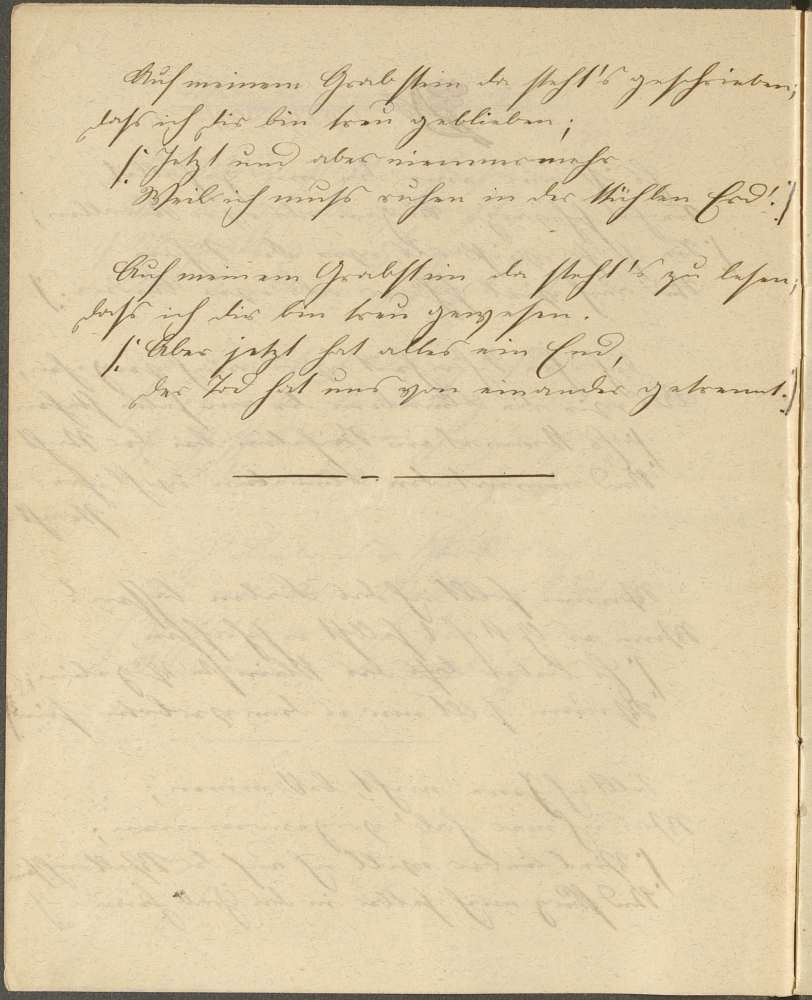 Auf meinem Grabstein da steht's geschrieben;
dass ich dir bin treu geblieben;
/: Jetzt und aber nimmermehr
Weil ich muss ruhen in der kühlen Erd'! :/
Auf meinem Grabstein da steht's zu lesen;
dass ich dir bin treu gewesen.
/: Aber jetzt hat alles ein End,
der Tod hat uns von einander getrennt. :/